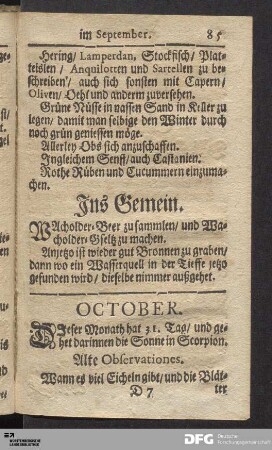 im September. 85
Hering/ Lamperdan, Stockfisch/ Plat-
teislen/ Anquilotten und Sartellen zu be-
schreiben/ auch sich sonsten mit Capern/
Oliven/ Oehl und anderm zuversehen.
Grüne Nüsse in nassen Sand in Keller zu
legen/ damit man selbige den Winter durch
noch grün geniessen möge.
Allerley Obs sich anzuschaffen.
Ingleichem Senff/ auch Castanien.
Rothe Rüben und Cucummern einzuma-
chen.
Ins Gemein.
WAcholder-Beer zu samlen/ und Wa-
cholder-Gseltz zu machen.
Anjetzo ist wieder gut Bronnen zu graben/
dann wo ein Wasserquell in der Tieffe jetzo
gefunden wird/ dieselbe nimmer außgehet.
OCTOBER.
DIeser Monath hat 31. Tag/ und ge-
het darinnen die Sonne in Scorpion.
Alte Observationes.
Wann es viel Eicheln gibt/ und die Blät-
D 7 ter
DFG Deutsche
Forschungsgemeinschaft